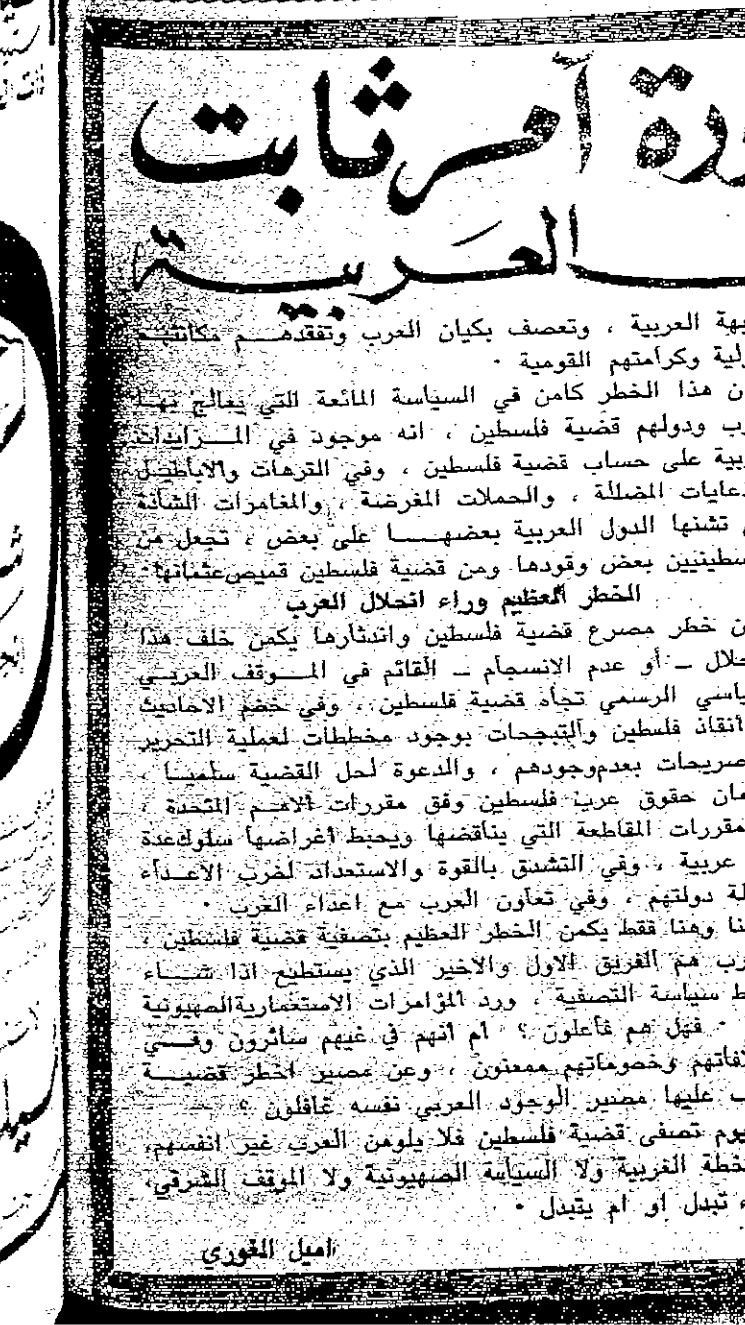 أمر ثابت
العربية
العربية ، وتعصف بكيان العرب وتفقدهـــم مكانتهم
وكرامتهم القومية .
هذا الخطر كامن في السياسة المائعة التي يعالج بهـا
ودولهم قضية فلسطين ، انه موجود في المــزايدات
على حساب قضية فلسطين ، وفي الترهات والاباطيـل
المضللة ، والحملات المغرضة ، والمغامرات الشاذة
تشنها الدول العربية بعضهــــا على بعض ، تجعل من
بعض وقودها ومن قضية فلسطين قميص عثمانها .
الخطر العظيم وراء انحلال العرب
خطر مصرع قضية فلسطين واندثارها يكمن خلف هذا
ــ أو عدم الانسجام ــ القائم في المـــوقف العربـي
الرسمي تجاه قضية فلسطين ، وفي خضم الاحاديث
أنقاذ فلسطين والتبجحات بوجود مخططات لعملية التحرير
بعدم وجودهم ، والدعوة لحل القضية سلميـا ،
حقوق عرب فلسطين وفق مقررات الامـم المتحدة ،
المقاطعة التي يناقضها ويحبط أغراضها سلوك عدة
عربية ، وفي التشدق بالقوة والاستعداد لضرب الاعـداء
دولتهم ، وفي تعاون العرب مع اعداء العرب .
وهنا فقط يكمن الخطر العظيم بتصفية قضية فلسطين ،
هم الفريق الاول والاخير الذي يستطيع اذا شــاء
سياسة التصفية ، ورد المؤامرات الاستعمارية الصهيونية
. فهل هم فاعلون ؟ ام انهم في غيهم سائرون وفـــي
وخصوماتهم ممعنون ، وعن مصير اخطر قضيـــة
عليها مصير الوجود العربي نفسه غافلون ؟
تصفى قضية فلسطين فلا يلومن العرب غير انفسهم،
الغربية ولا السياسة الصهيونية ولا الموقف الشرقي،
تبدل او ام يتبدل .
اميل الغوري